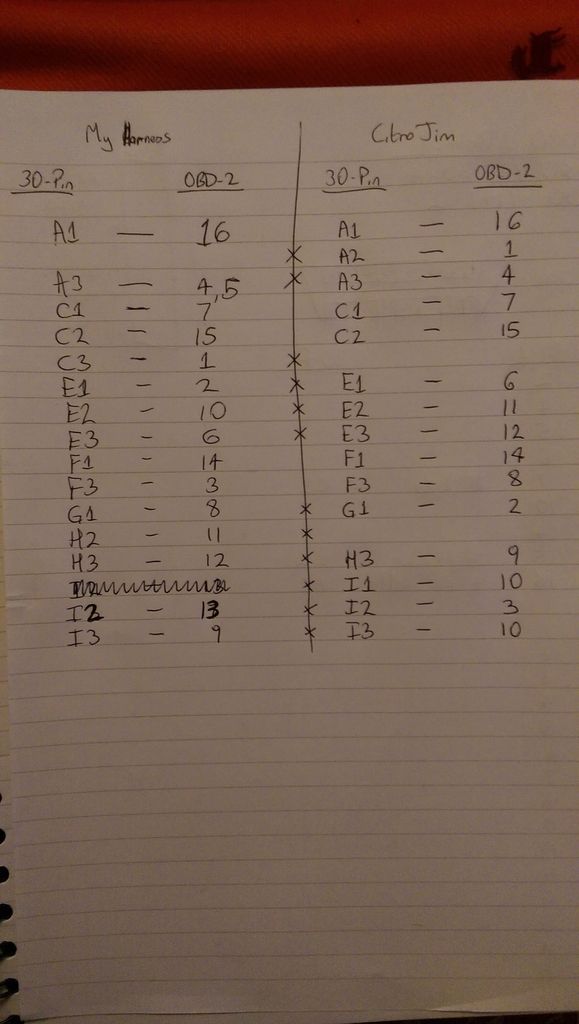 My Harness CitroJim
30-Pin OBD-2 30-Pin OBD-2
A1 — 16 A1 — 16
x A2 — 1
A3 — 4,5 x A3 — 4
C1 — 7 C1 — 7
C2 — 15 C2 — 15
C3 — 1 x
E1 — 2 x E1 — 6
E2 — 10 x E2 — 11
E3 — 6 x E3 — 12
F1 — 14 F1 — 14
F3 — 3 F3 — 8
G1 — 8 x G1 — 2
H2 — 11 x
H3 — 12 x H3 — 9
x I1 — 10
I2 — 13 x I2 — 3
I3 — 9 x I3 — 10